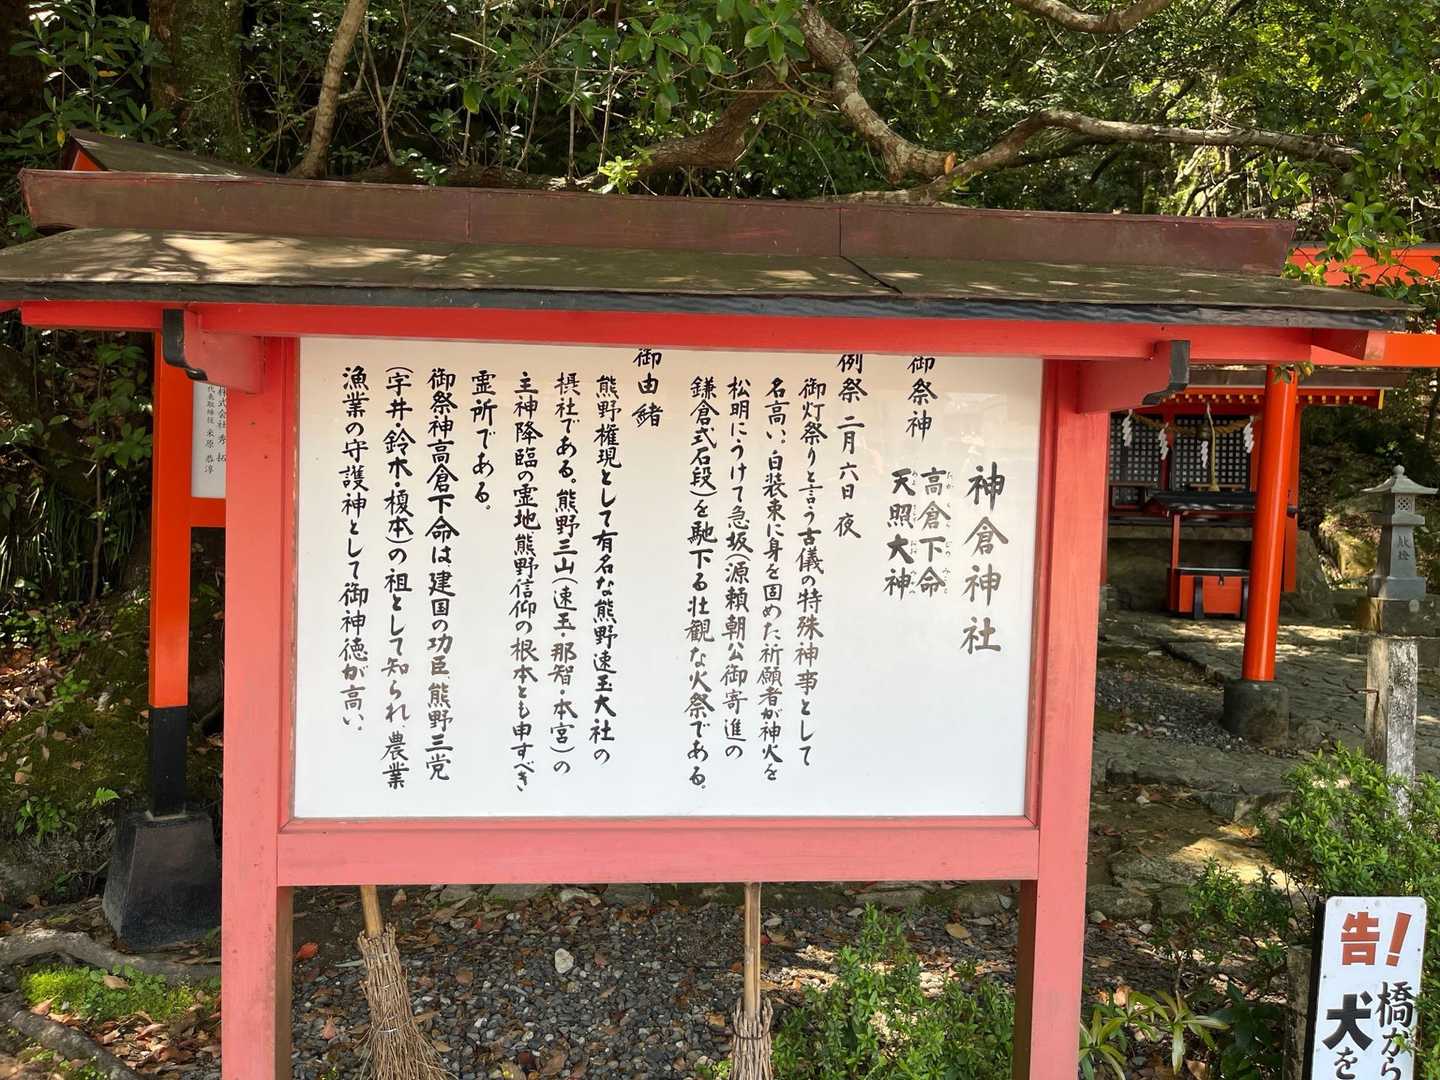 神倉神社
御祭神
高倉下命
天照大神
例祭 二月六日夜
御灯祭りと言う古儀の特殊神事として
名高い。白装束に身を固めた祈願者が神火を
松明にうけて急坂(源頼朝公御寄進の
鎌倉式石段)を馳下る壮観な火祭である。
御由緒
熊野権現として有名な熊野速玉大社の
摂社である。熊野三山(速玉・那智・本宮)の
主神降臨の霊地、熊野信仰の根本とも申すべき
霊所である。
御祭神高倉下命は建国の功臣、熊野三党
(宇井・鈴木・榎本)の祖として知られ、農業
漁業の守護神として御神徳が高い。
株式会社 秀拓
代表取締役 米原 恭淳
献燈
告!
橋から
犬を